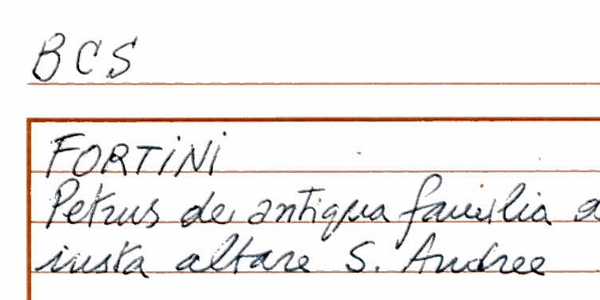 BCS
FORTINI
Petrus de antiqua familia
iusta altare S. Andree